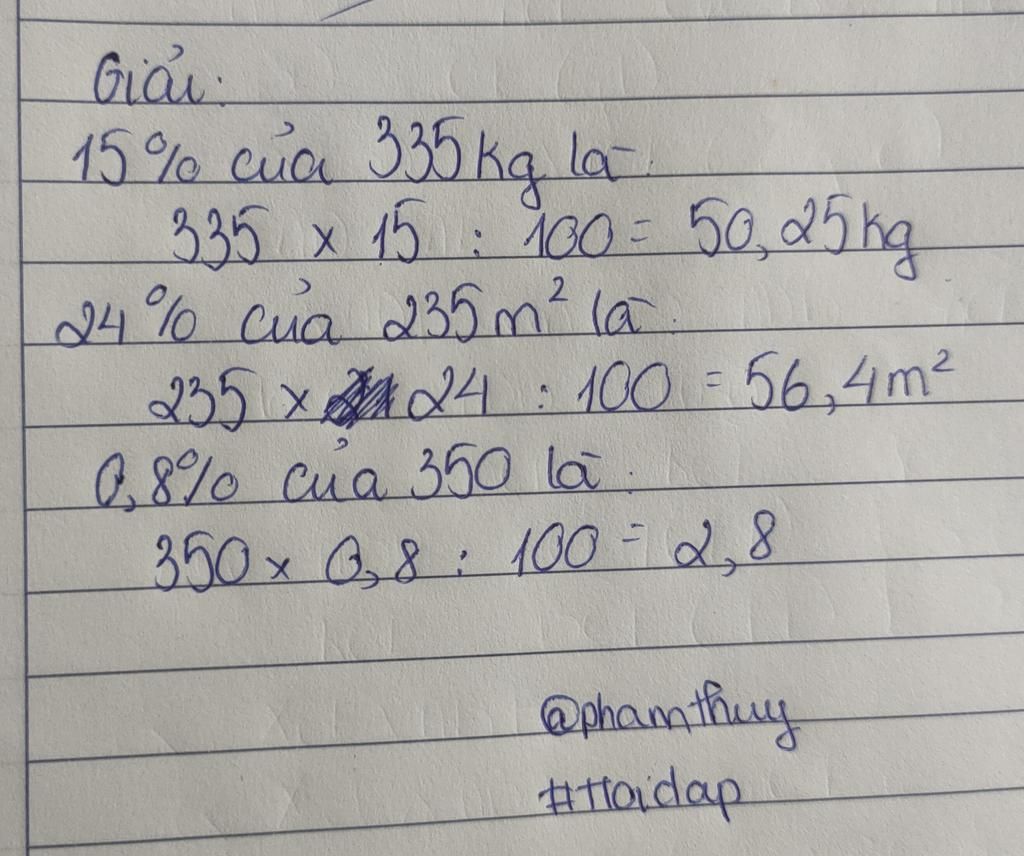 Giải:
15% của 335kg là:
335 x 15 : 100 = 50,25kg
24% của 235m² là:
235 x 24 : 100 = 56,4m²
0,8% của 350 là:
350 x 0,8 : 100 = 2,8
@phamthuy
#Hoidap